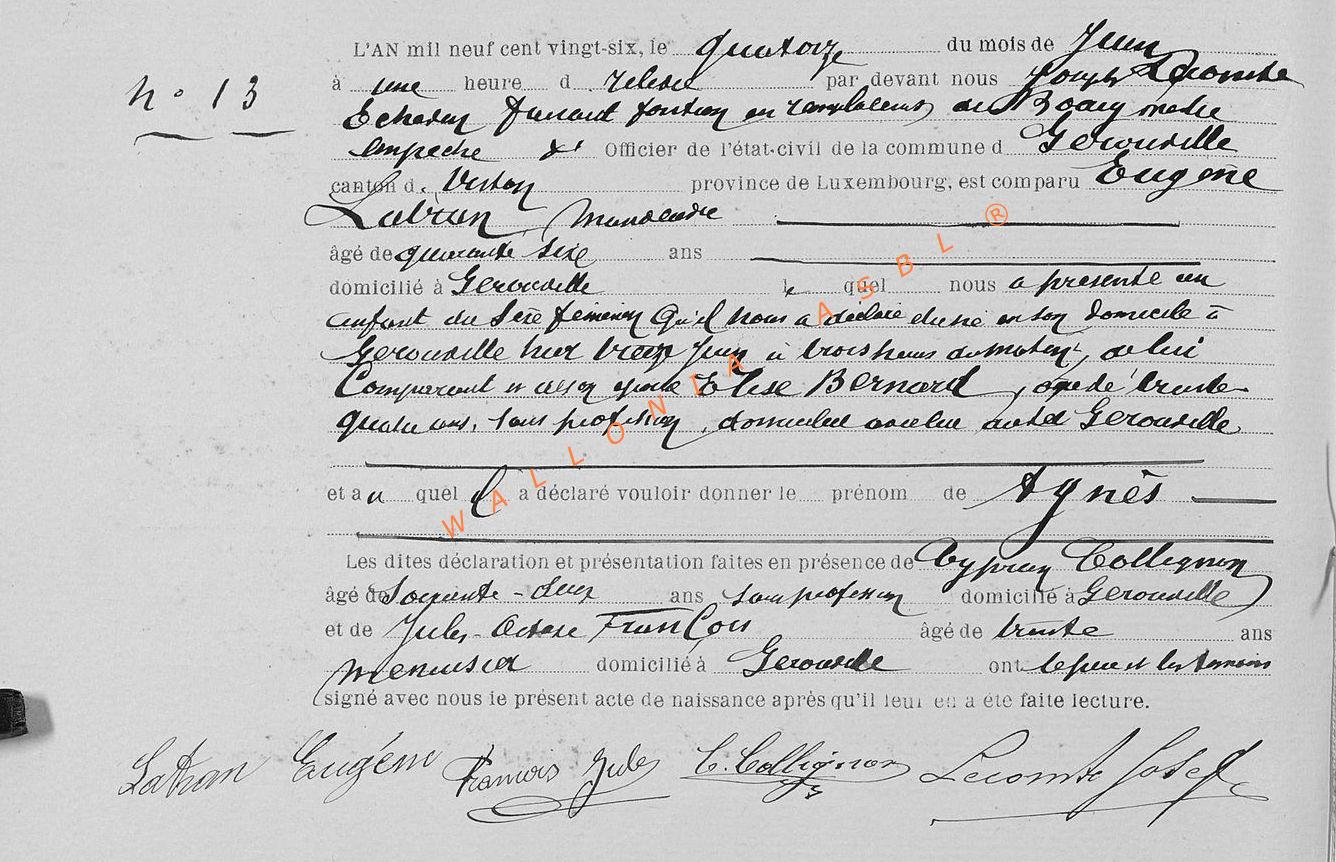 L'AN mil neuf cent vingt-six, le quatorze du mois de Juin
n° 13
à une heure d relevée par devant nous Joseph Lecomte
Echevin faisant fonction en remplacement du Bourgmestre
empeché & Officier de l'état-civil de la commune d Gerouville
canton d. Virton province de Luxembourg, est comparu Eugène
Latran, Manoeuvre
âgé de quarante six ans
domicilié à Gerouville le quel nous a présenté un
enfant du Sexe féminin Qu'il nous a déclaré être né en son domicile à
Gerouville hier treize Juin à trois heures du matin, de lui
Comparant et de son épouse Elise Bernard, agée de trente-
quatre ans, sans profession, domiciliée avec lui audit Gerouville
et a u quel il a déclaré vouloir donner le prénom de Agnès
Les dites déclaration et présentation faites en présence de Cyprien Collignon
âgé de Soixante-deux ans sans profession domicilié à Gerouville
et de Jules-Octave François âgé de trente ans
menuisier domicilié à Gerouville ont le père et les témoins
signé avec nous le présent acte de naissance après qu'il leur en a été faite lecture.
Latran Eugène François Jules C. Collignon Lecomte Josef
WALLONIA ASBL ®